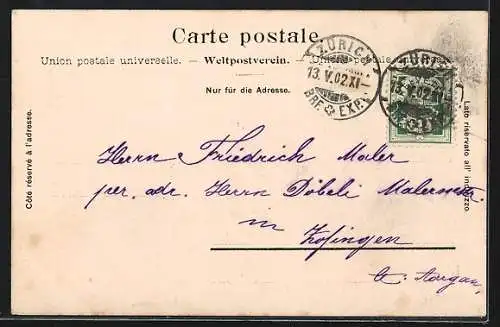 Carte postale.
Union postale universelle. — Weltpostverein. — Unione postale universale.
Nur für die Adresse.
ZÜRICH
13. V. 02. XI
BRF. EXP.
ZÜRICH
13. V. 02
Côté réservé à l'adresse.
Lato riservato all' indirizzo.
Herrn Friedrich Maler
per. adr. Herrn Döbeli Malermstr
in
Zofingen
Ct. Aargau,